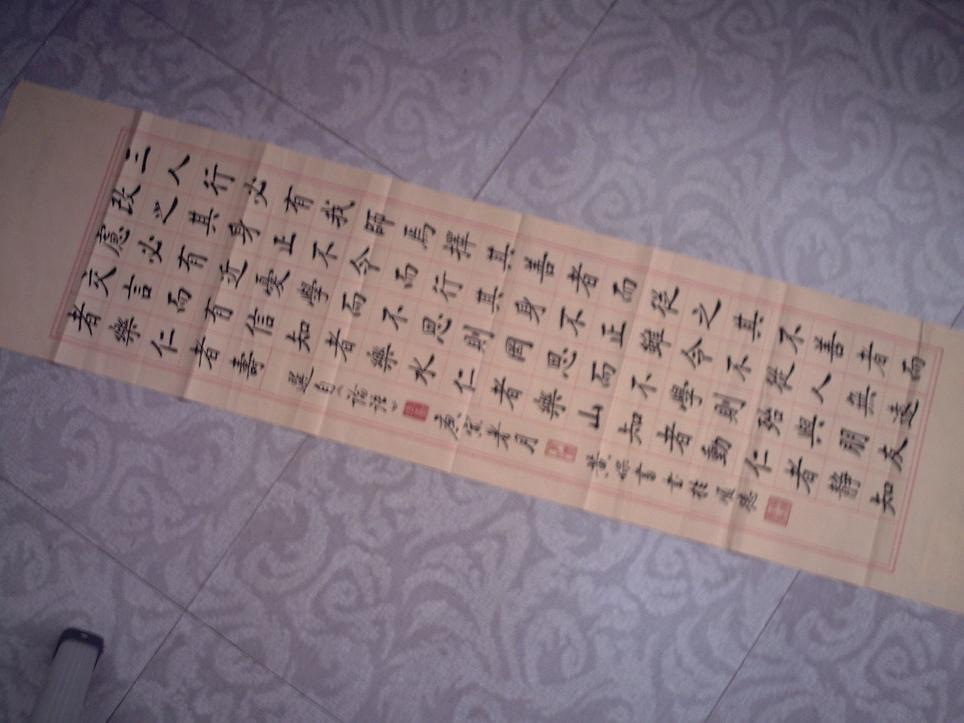 三人行必有我師焉擇其善者而從之其不善者而
改之其身正不令而行其身不正雖令不從人無遠
慮必有近憂學而不思則罔思而不學則殆與朋友
交言而有信知者樂水仁者樂山知者動仁者靜知
者樂仁者壽 選自《論語》 庚寅 月 書